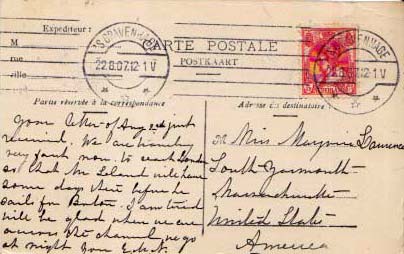 Expéditeur:
M
rue
ville
'S GRAVENHAGE
22.8.07.12-1V
CARTE POSTALE
POSTKAART
'S GRAVENHAGE
22.8.07.12-1V
Partie réservée à la correspondance
Adresse du destinataire
Your letter of Aug. just
received. We are
very fast now. to reach London
so that Mr Leland will have
some days there before he
sails for Boston. I am tired
will be glad when we are
across the channel, we go
at night
Miss Lawrence
South Yarmouth
Massachusetts
United States
America